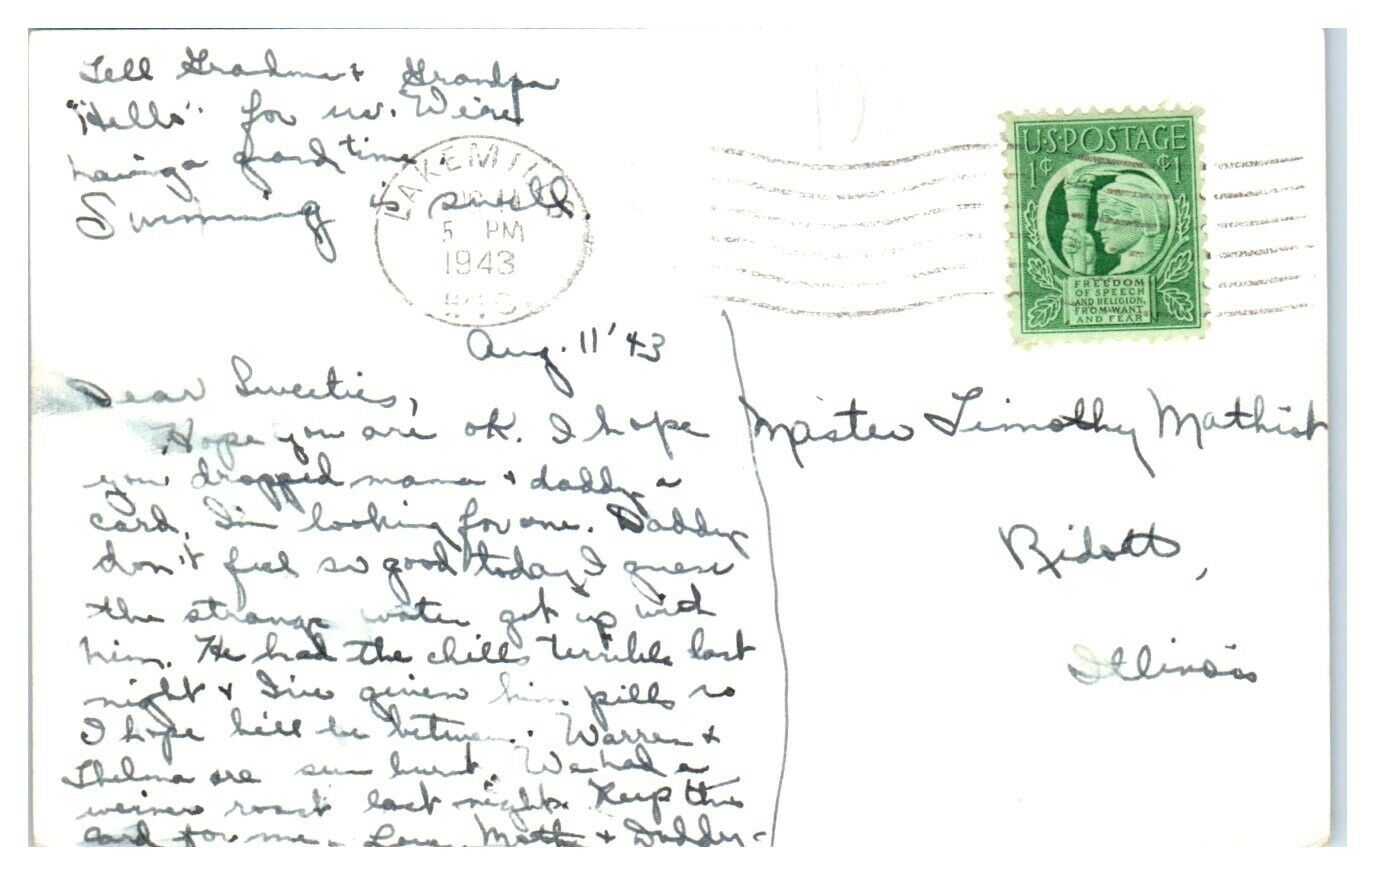 Tell Grandma & Grandpa
"Hello" for us. We're
having a grand time
Swimming is swell.
LAKE MILLS
5 PM
1943
WIS
U.S. POSTAGE
1¢ ¢1
FREEDOM
OF SPEECH
AND RELIGION,
FROM WANT
AND FEAR
Aug. 11 '43
Dear Sweeties,
Hope you are ok. I hope
you dropped mama & daddy a
card. I'm looking for one. Daddy
don't feel so good today I guess
the strange water got up with
him. He had the chills terrible last
night & I've given him pills so
I hope he'll be better. Warren &
Thelma are sun burnt. We had a
weiner roast last night. Keep this
card for me. Love, Mother & Daddy-
Master Timothy Mathiot
Ridott,
Illinois